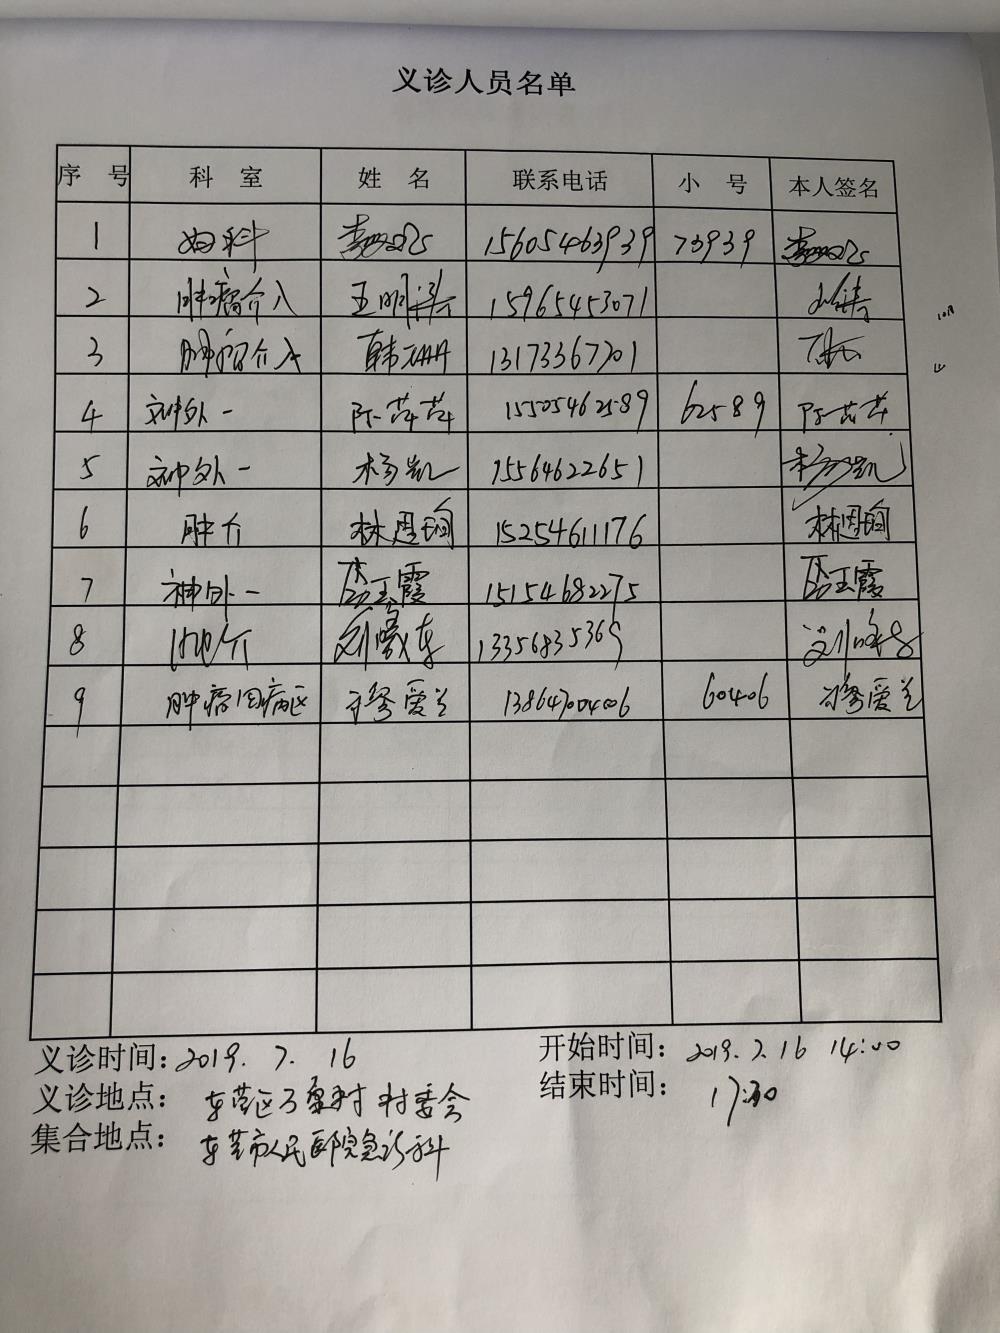 义诊人员名单
序 号 科 室 姓 名 联系电话 小 号 本人签名
1 妇科 15605463939 73939
2 肿瘤介入 王明涛 15965453071
3 肿瘤介入 韩珊珊 13173367201
4 神外一 陈萍萍 15505462589 62589 陈萍萍
5 神外一 杨凯 15564622651 杨凯
6 肿介 林恩珣 15254611176 林恩珣
7 神外一 玉霞 15154682275 玉霞
8 刘曦 13356835369 刘
9 肿瘤 病区 爱兰 13864700406 60406 爱兰
义诊时间：2019.7.16 开始时间：2019.7.16 14:00
义诊地点：东营区万泉村 村委会 结束时间：17:30
集合地点：东营市人民医院急诊科